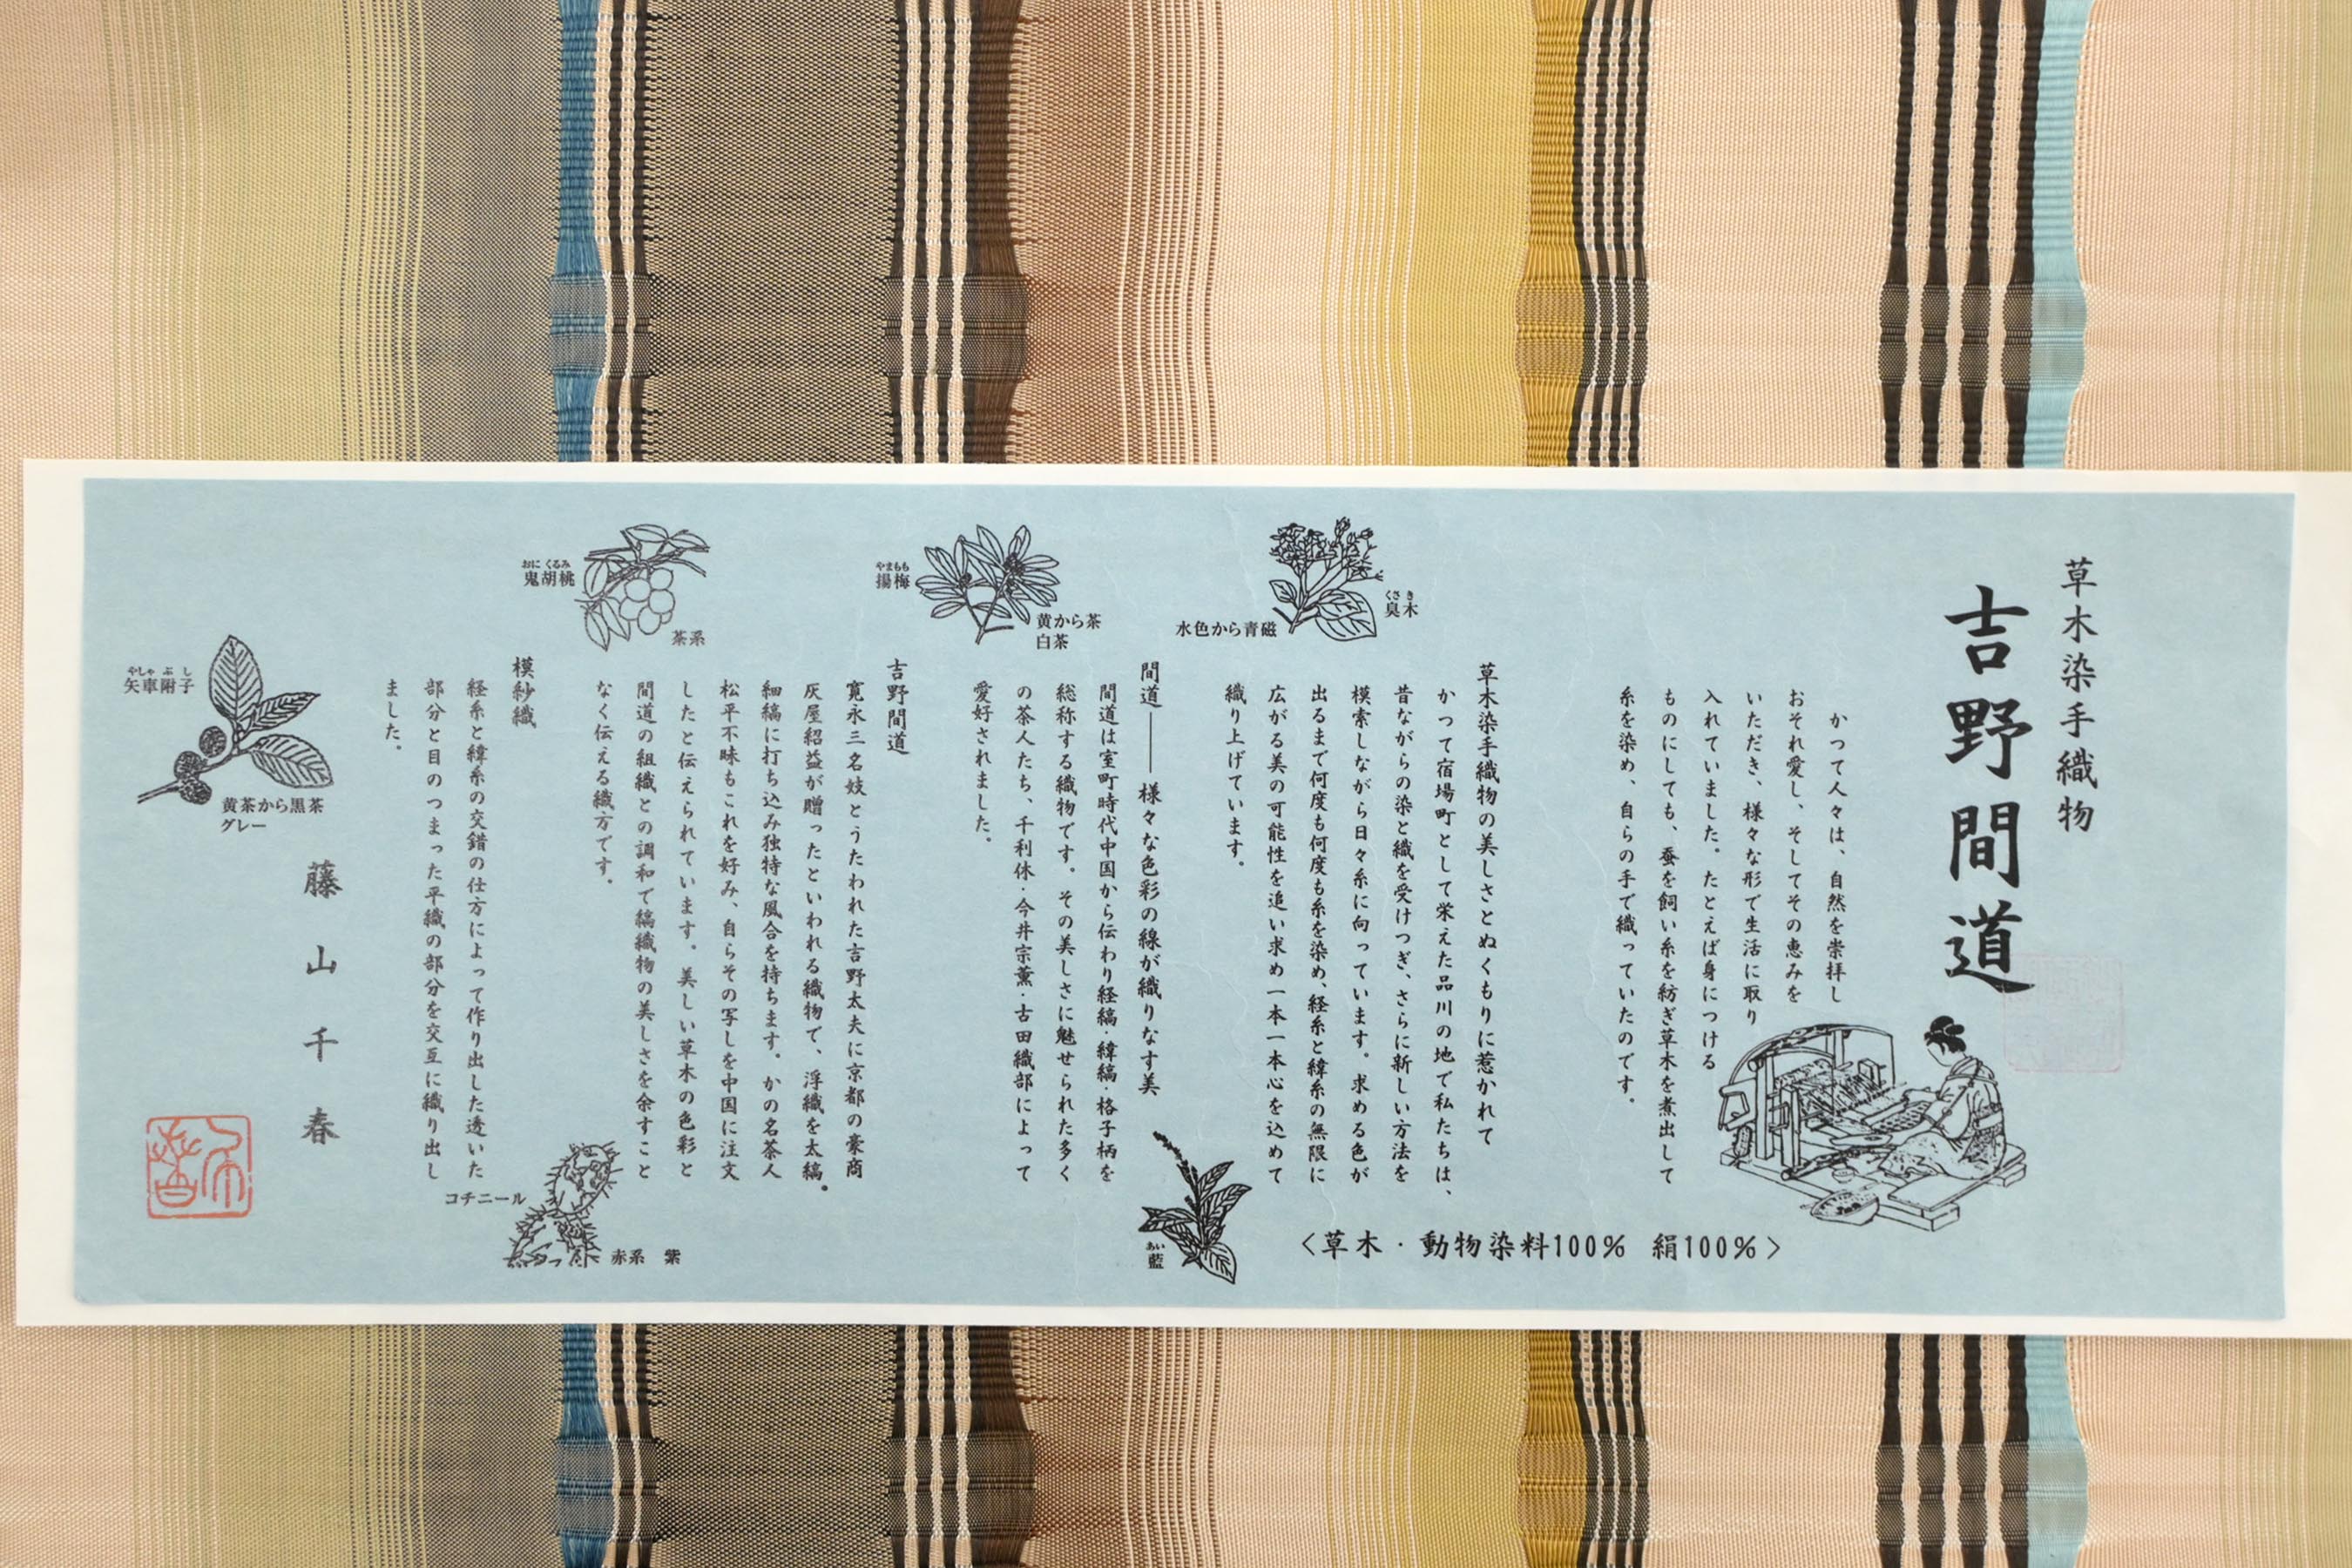 草木染手織物
吉野間道
かつて人々は、自然を崇拝し
おそれ愛し、そしてその恵みを
いただき、様々な形で生活に取り
入れていました。たとえば身につける
ものにしても、蚕を飼い糸を紡ぎ草木を煮出して
糸を染め、自らの手で織っていたのです。
草木染手織物の美しさとぬくもりに惹かれて
かつて宿場町として栄えた品川の地で私たちは、
昔ながらの染と織を受けつぎ、さらに新しい方法を
模索しながら日々糸に向っています。求める色が
出るまで何度も何度も糸を染め、経糸と緯糸の無限に
広がる美の可能性を追い求め一本一本心を込めて
織り上げています。
間道――様々な色彩の線が織りなす美
間道は室町時代中国から伝わり経縞・緯縞・格子柄を
総称する織物です。その美しさに魅せられた多く
の茶人たち、千利休・今井宗薫・古田織部によって
愛好されました。
吉野間道
寛永三名妓とうたわれた吉野太夫に京都の豪商
灰屋紹益が贈ったといわれる織物で、浮織を太縞・
細縞に打ち込み独特な風合を持ちます。かの名茶人
松平不昧もこれを好み、自らその写しを中国に注文
したと伝えられています。美しい草木の色彩と
間道の組織との調和で縞織物の美しさを余すこと
なく伝える織方です。
模紗織
経糸と緯糸の交錯の仕方によって作り出した透いた
部分と目のつまった平織の部分を交互に織り出し
ました。
藤山千春
くさき
臭木
水色から青磁
やまもも
揚梅
黄から茶
白茶
おにくるみ
鬼胡桃
茶系
やしゃぶし
矢車附子
黄茶から黒茶
グレー
コチニール
赤系　紫
あい
藍
〈草木・動物染料100%　絹100%〉